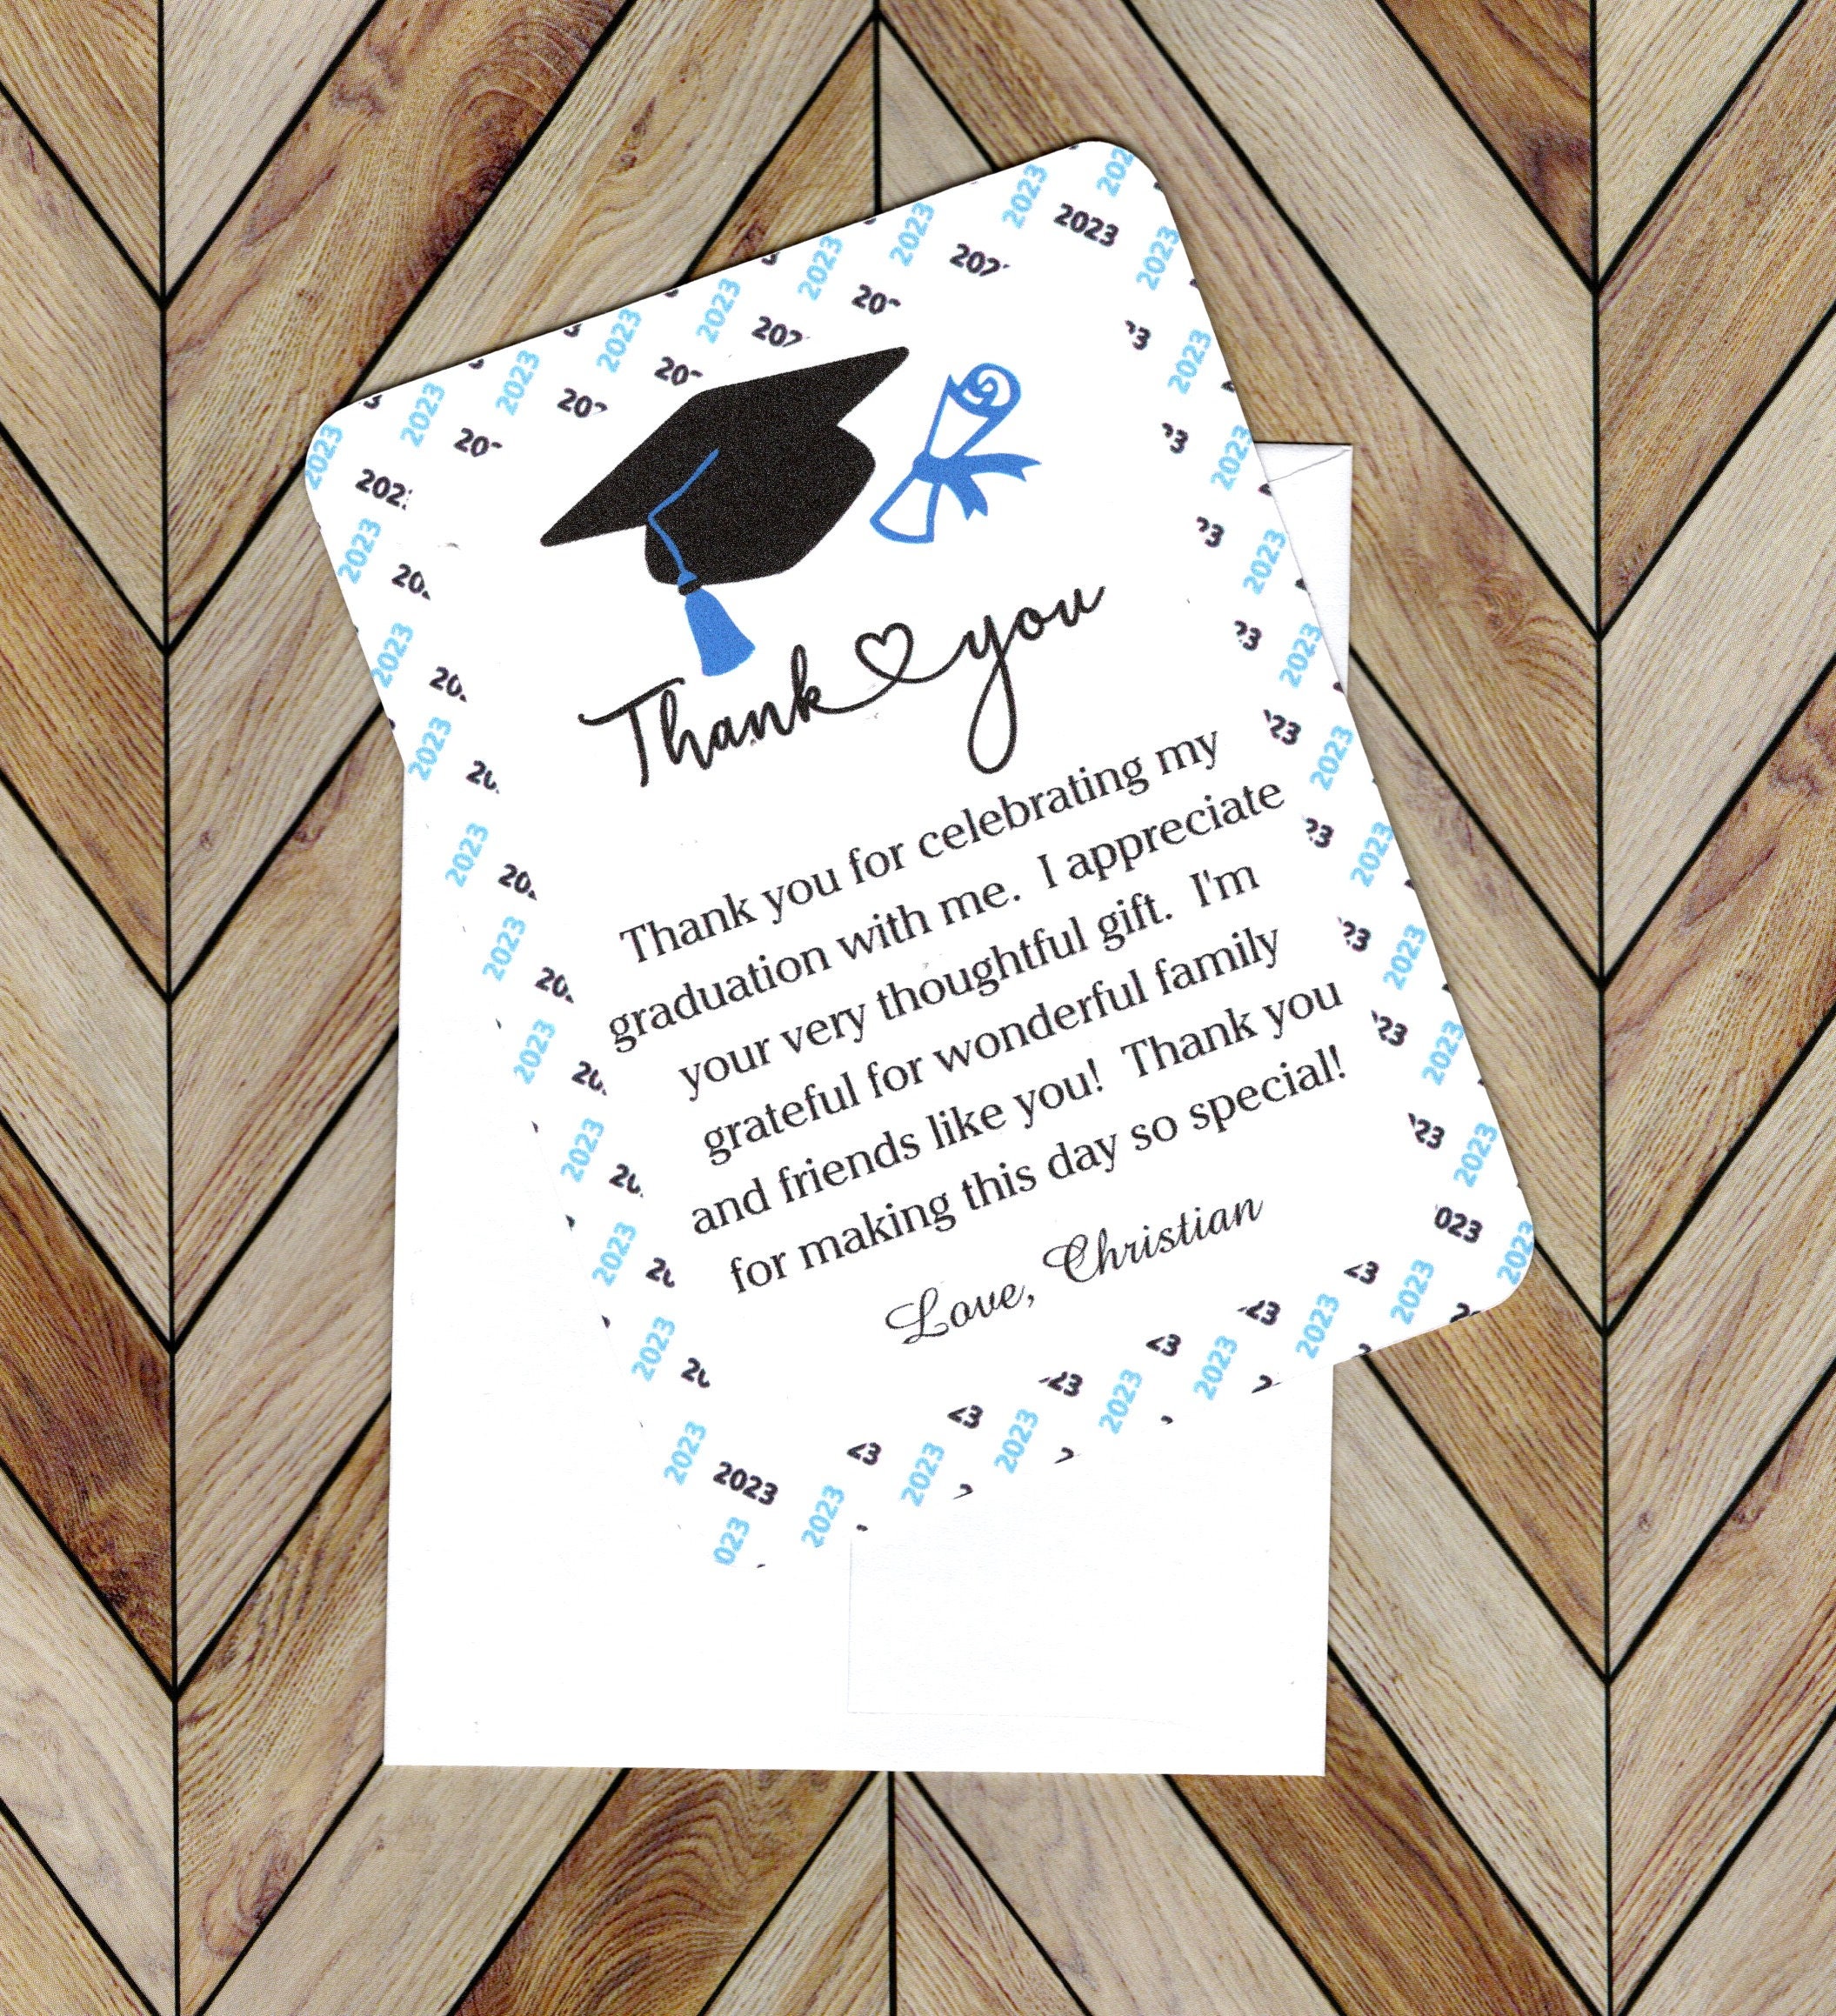 Thank you
Thank you for celebrating my
graduation with me.  I appreciate
your very thoughtful gift.  I'm
grateful for wonderful family
and friends like you!  Thank you
for making this day so special!
Love, Christian
2023